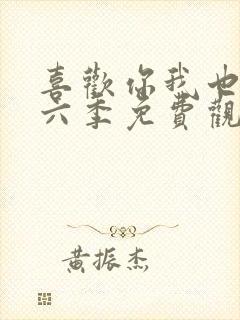 喜歡你我也
六季免費觀
黃振杰